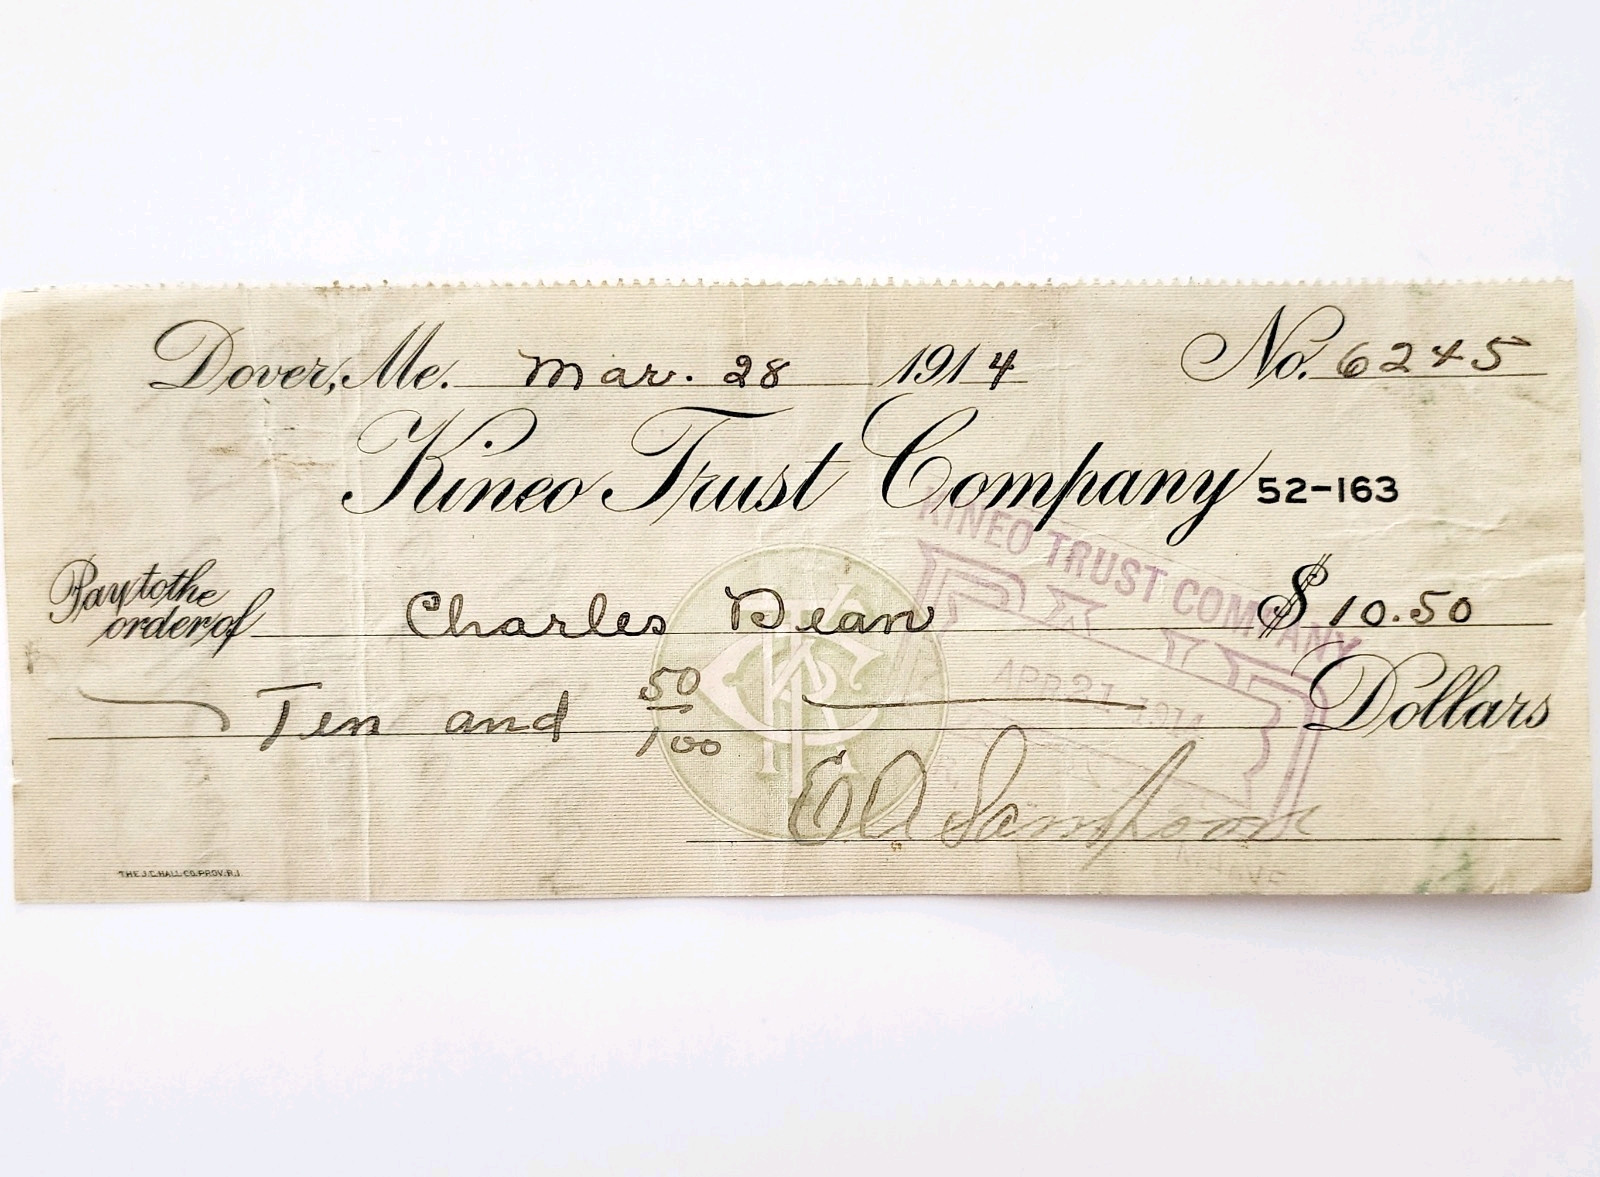 Dover, Me. Mar. 28 1914 No. 6245
Kineo Trust Company 52-163
Pay to the
order of Charles Dean $ 10.50
Ten and 50/100 Dollars
KINEO TRUST COMPANY
PAID
APR 21 1914
E A Sampson
THE J.C. HALL CO. PROV. R.I.